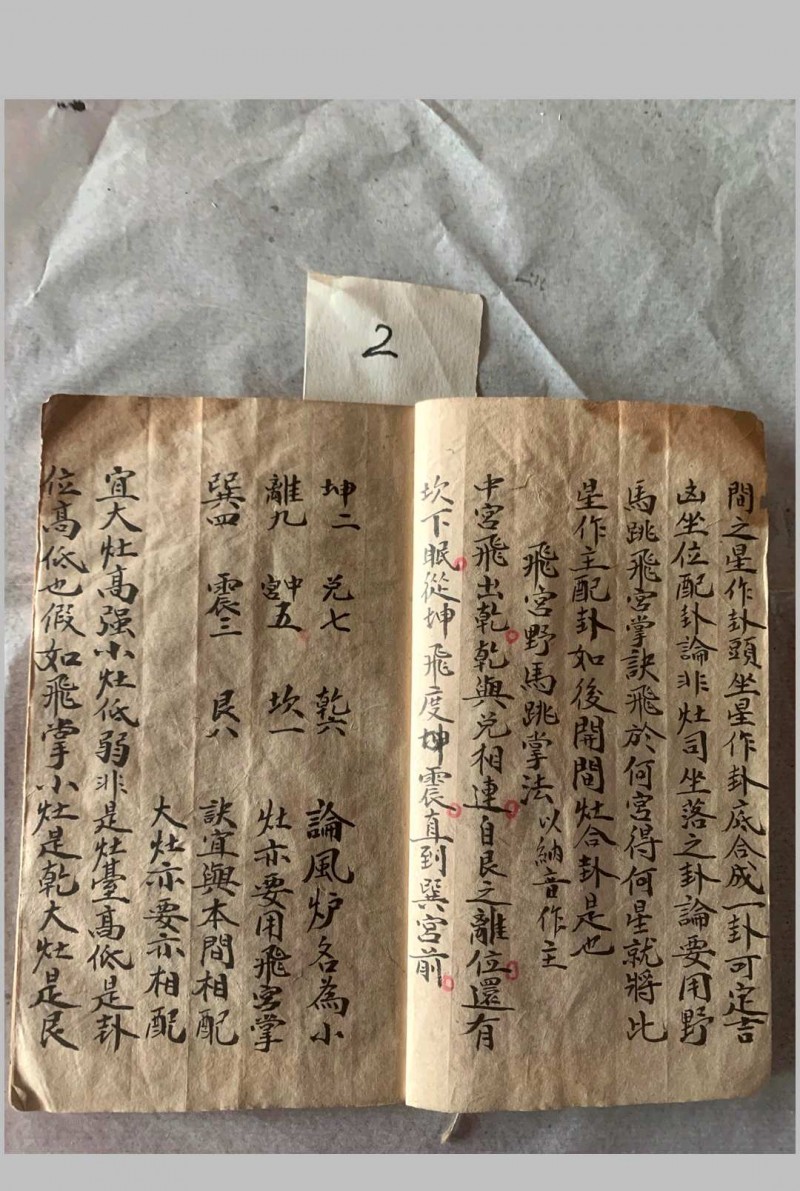 2
間之星作卦頭坐星作卦底合成一卦可定吉
凶坐位配卦論非灶司坐落之卦論要用野
馬跳飛宮掌訣飛於何宮得何星就將此
星作主配卦如後開間灶合卦是也
飛宮野馬跳掌法以納音作主
中宮飛出乾乾與兌相連自艮之離位還有
坎下眠從坤飛度坤震直到巽宮前
坤二 兌七 乾六 論風炉名為小
離九 中宮五 坎一 灶亦要用飛宮掌
巽四 震三 艮八 訣宜與本間相配
大灶亦要亦相配
宜大灶高强小灶低弱非是灶臺高低是卦
位高低也假如飛掌小灶是乾大灶是艮